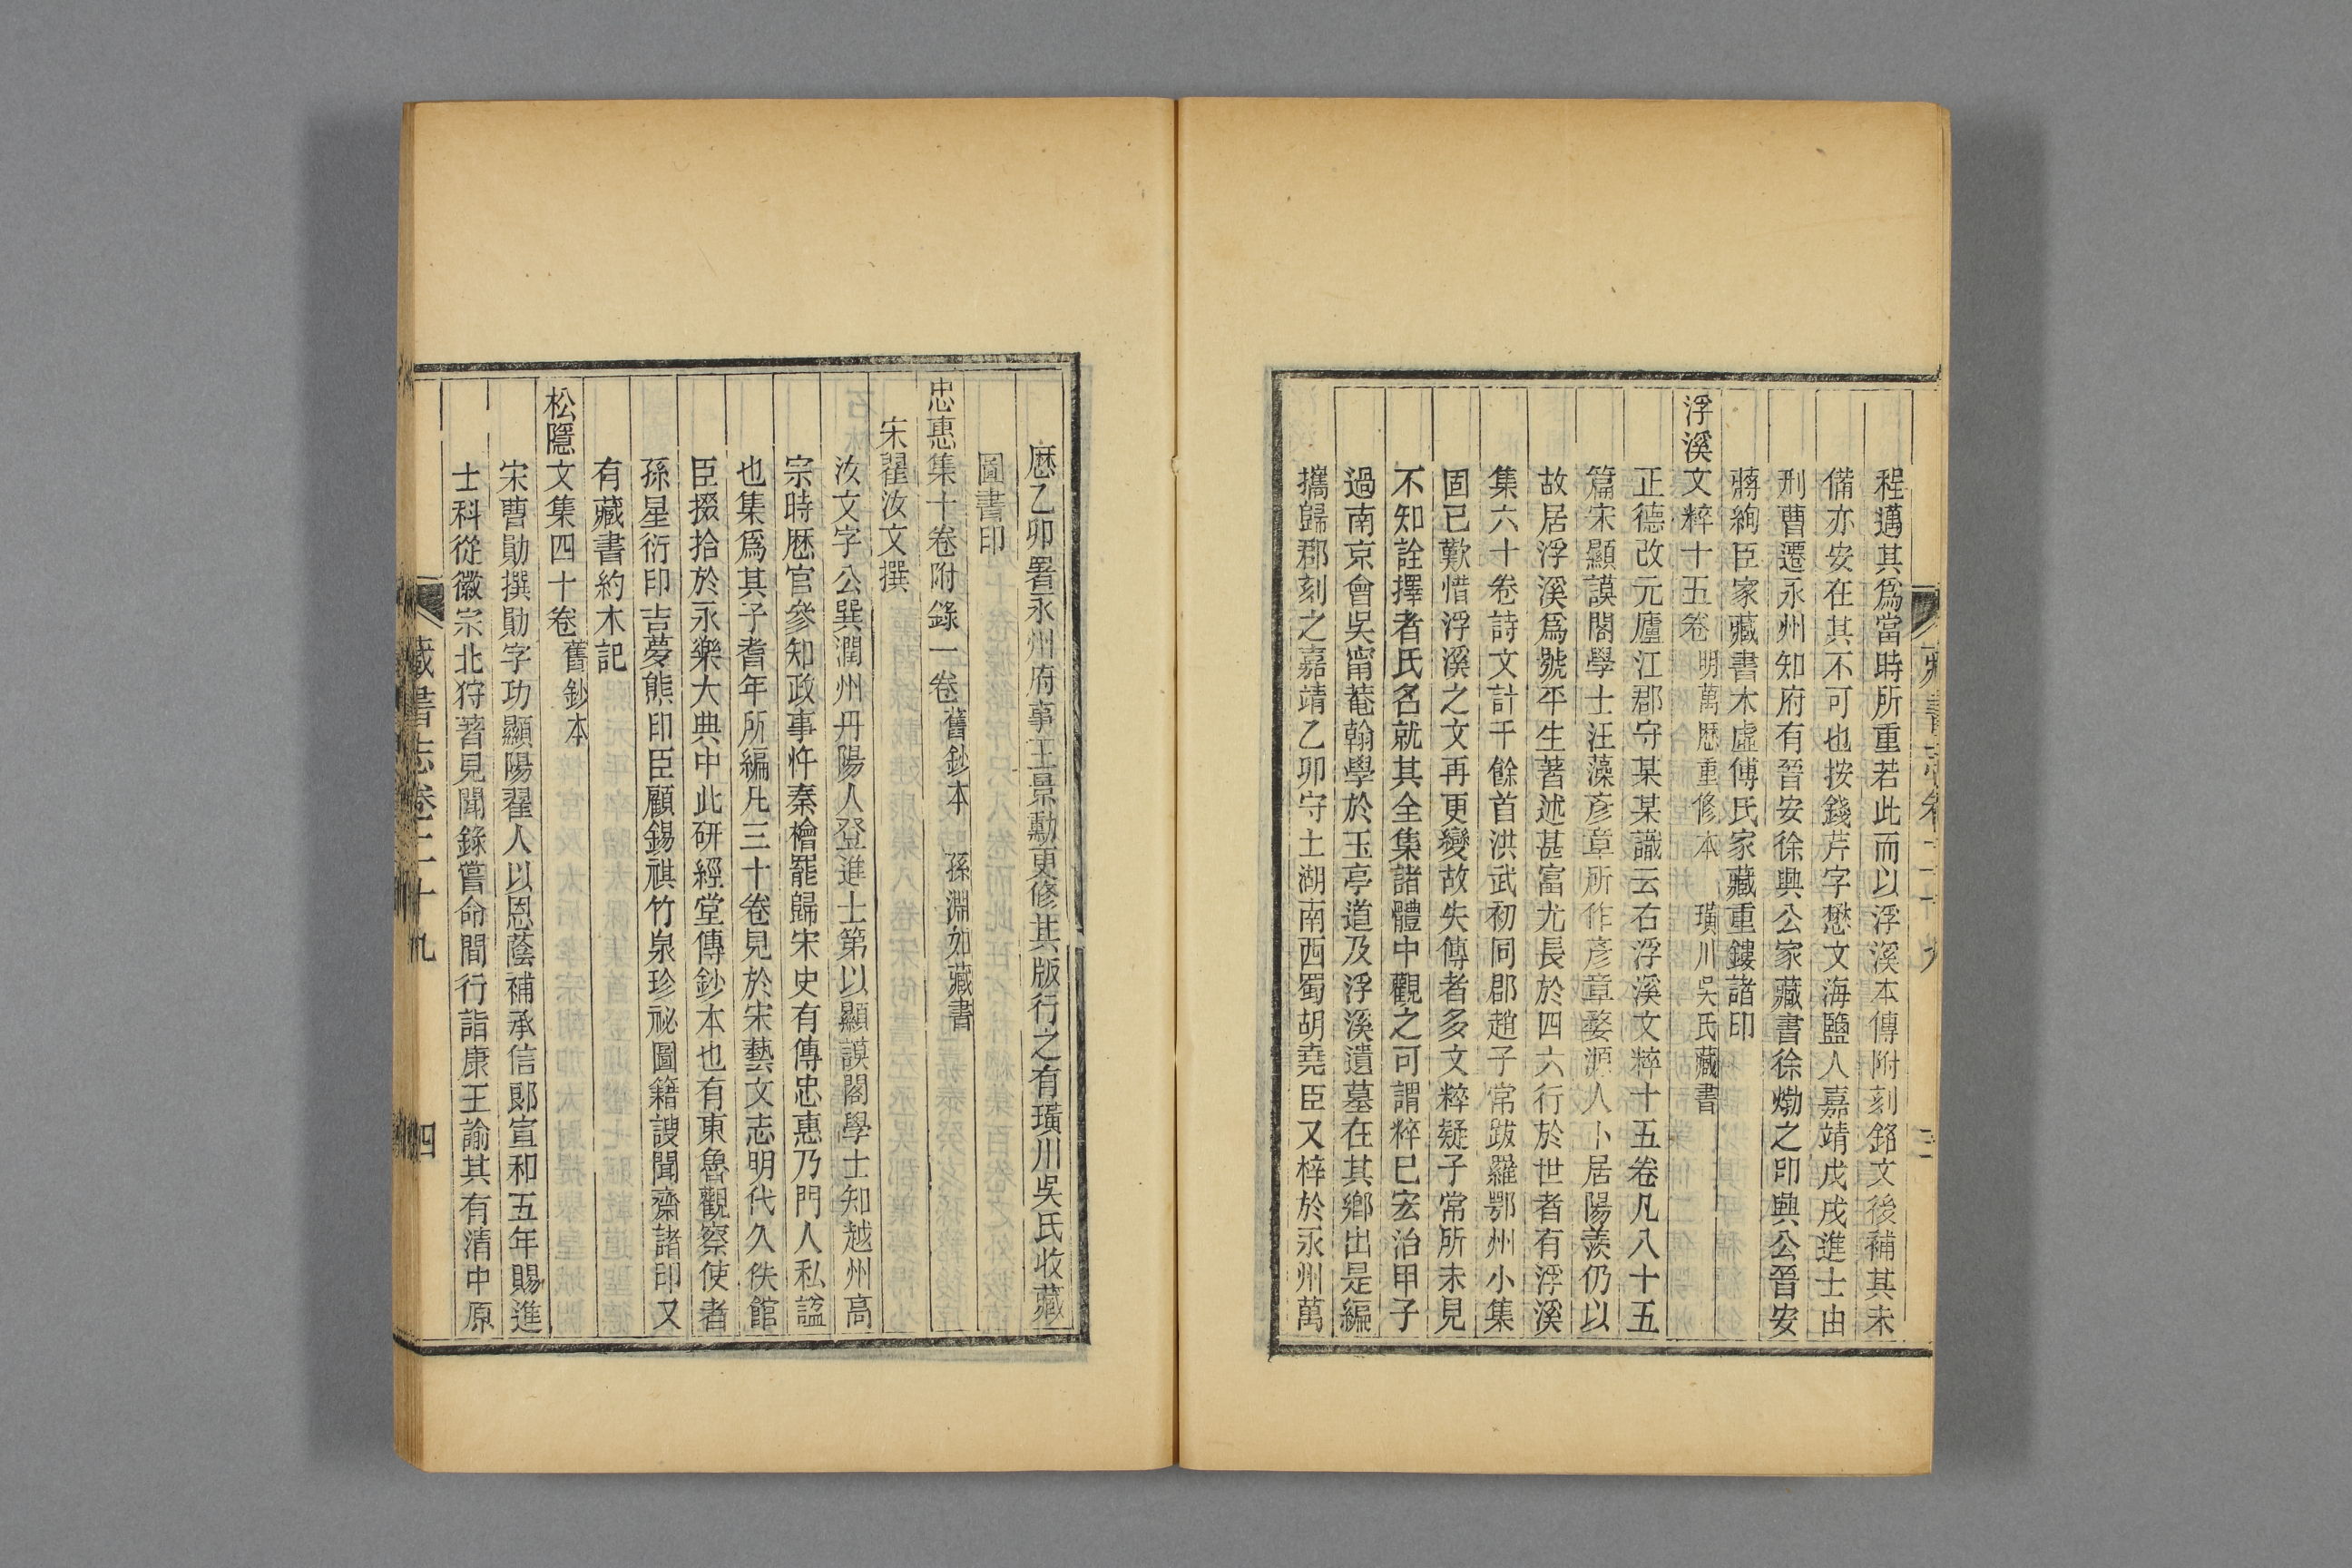 程邁其爲當時所重若此而以浮溪本傳附刻銘文後補其未
備亦安在其不可也按錢芹字懋文海鹽人嘉靖戊戌進士由
刑曹遷永州知府有晉安徐興公家藏書徐𤊹之印興公晉安
蔣絢臣家藏書木虛傅氏家藏重鏤諸印
浮溪文粹十五卷 明萬歷重修本 璜川吳氏藏書
正德改元廬江郡守某某識云右浮溪文粹十五卷凡八十五
篇宋顯謨閣學士汪藻彥章所作彥章婺源人卜居陽羨仍以
故居浮溪爲號平生著述甚富尤長於四六行於世者有浮溪
集六十卷詩文計千餘首洪武初同郡趙子常跋羅鄂州小集
固已歎惜浮溪之文再更變故失傳者多文粹疑子常所未見
不知詮擇者氏名就其全集諸體中觀之可謂粹已宏治甲子
過南京會吳甯菴翰學於玉亭道及浮溪遺墓在其鄉出是編
攜歸郡刻之嘉靖乙卯守土湖南西蜀胡堯臣又梓於永州萬
歷乙卯署永州府事王景勳更修其版行之有璜川吳氏收藏
圖書印
忠惠集十卷附錄一卷 舊鈔本 孫淵如藏書
宋翟汝文撰
汝文字公巽潤州丹陽人登進士第以顯謨閣學士知越州高
宗時歷官參知政事忤秦檜罷歸宋史有傳忠惠乃門人私諡
也集爲其子耆年所編凡三十卷見於宋藝文志明代久佚館
臣掇拾於永樂大典中此硏經堂傳鈔本也有東魯觀察使者
孫星衍印吉夢熊印臣顧錫祺竹泉珍祕圖籍謏聞齋諸印又
有藏書約木記
松隱文集四十卷 舊鈔本
宋曹勛撰勛字功顯陽翟人以恩蔭補承信郎宣和五年賜進
士科從徽宗北狩著見聞錄嘗命間行詣康王諭其有清中原
藏書志卷二十九 四